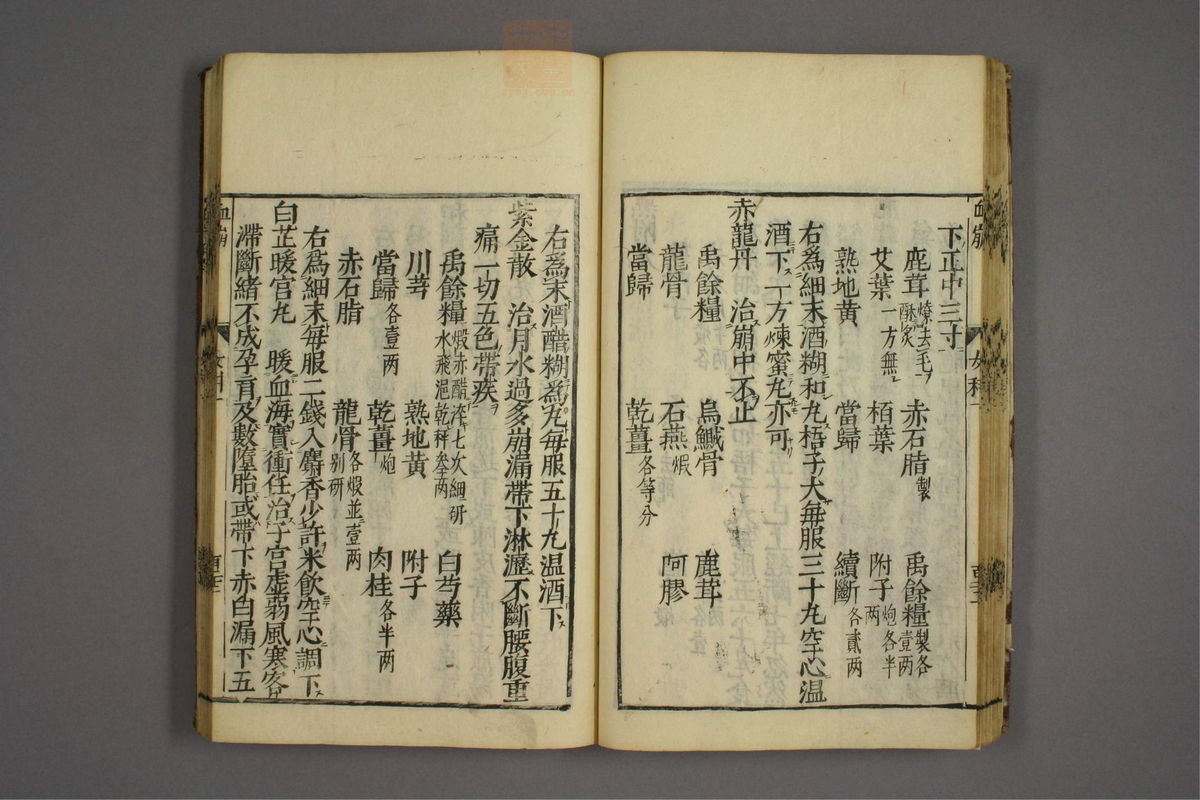 下正中三寸
鹿茸燎去毛酥炙　赤石脂製　禹餘糧製各壹兩
艾葉一方無　栢葉　附子炮各半兩
熟地黄　當歸　續斷各貳兩
右爲細末酒糊和丸梧子大每服三十丸空心温
酒下一方煉蜜丸亦可
赤龍丹　治崩中不止
禹餘糧　烏鰂骨　鹿茸
龍骨　石燕煆　阿膠
當歸　乾薑各等分
右爲末酒醋糊爲丸每服五十丸温酒下
紫金散　治月水過多崩漏帶下淋瀝不斷腰腹重
痛一切五色帶疾
禹餘糧煆赤醋淬七次細研水飛浥乾秤叁兩　白芍藥
川芎　熟地黄　附子
當歸各壹兩　乾薑炮　肉桂各半兩
赤石脂　龍骨各煆並壹兩别研
右爲細末每服二錢入麝香少許米飲空心調下
白芷暖宫丸　暖血海實衝任治子宫虚弱風寒客
滯斷緒不成孕育及數墮胎或帶下赤白漏下五
血崩
女科一